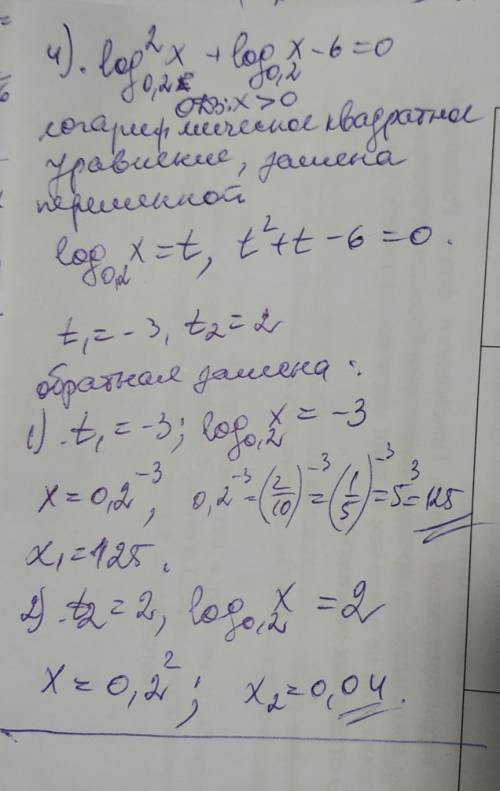 4). log²₀,₂ x + log₀,₂ x - 6 = 0
ОДЗ: x > 0
логарифмическое квадратное
уравнение, замена
переменной
log₀,₂ x = t, t² + t - 6 = 0.
t₁ = -3, t₂ = 2
обратная замена:
1). t₁ = -3; log₀,₂ x = -3
x = 0,2⁻³; 0,2⁻³ = (2/10)⁻³ = (1/5)⁻³ = 5³ = 125
x₁ = 125.
2). t₂ = 2, log₀,₂ x = 2
x = 0,2²; x₂ = 0,04.